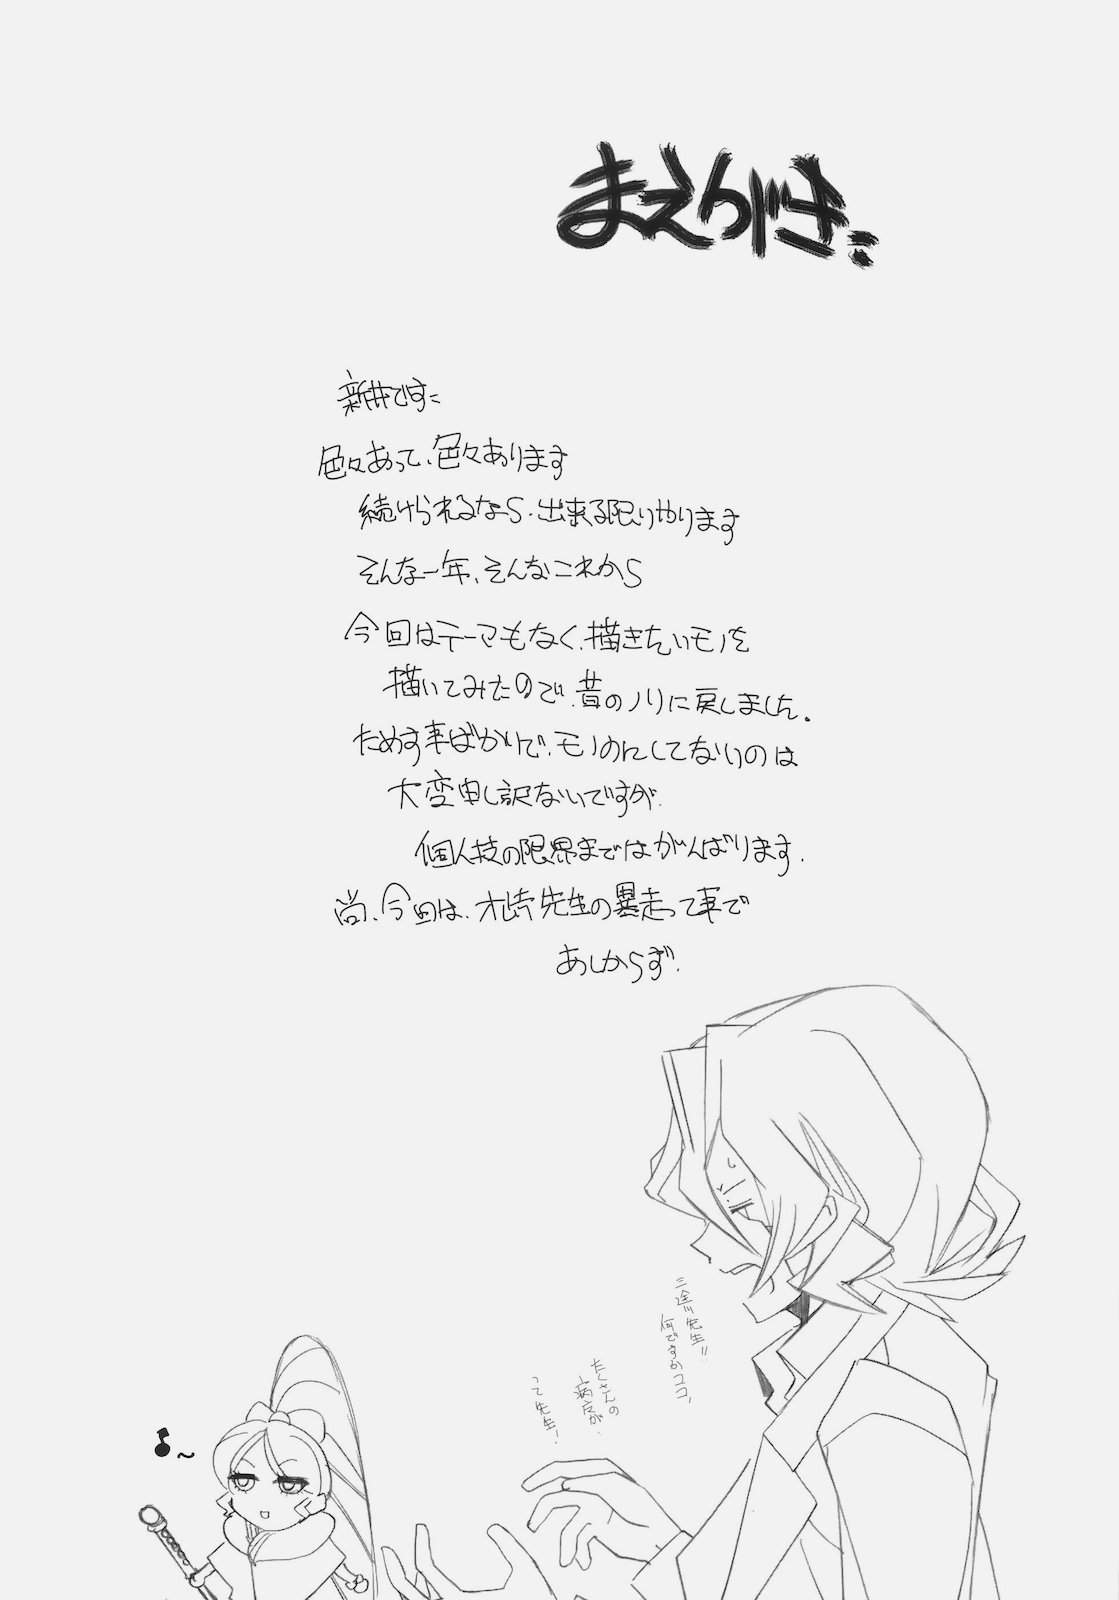 まえがき:
新井です:
色々あって、色々あります
続けられるなら、出来る限りやります
そんな一年、そんなこれから
今回はテーマもなく、描きたいモノを
描いてみたので、昔のノリに戻しました。
ためす事ばかりで、モノのにしてないのは
大変申し訳ないですが、
個人技の限界まではがんばります.
尚、今回は、先生の暴走って事で
あしからず.
三途川先生!!
何ですかココ、
たくさんの
病友が、
って先生!